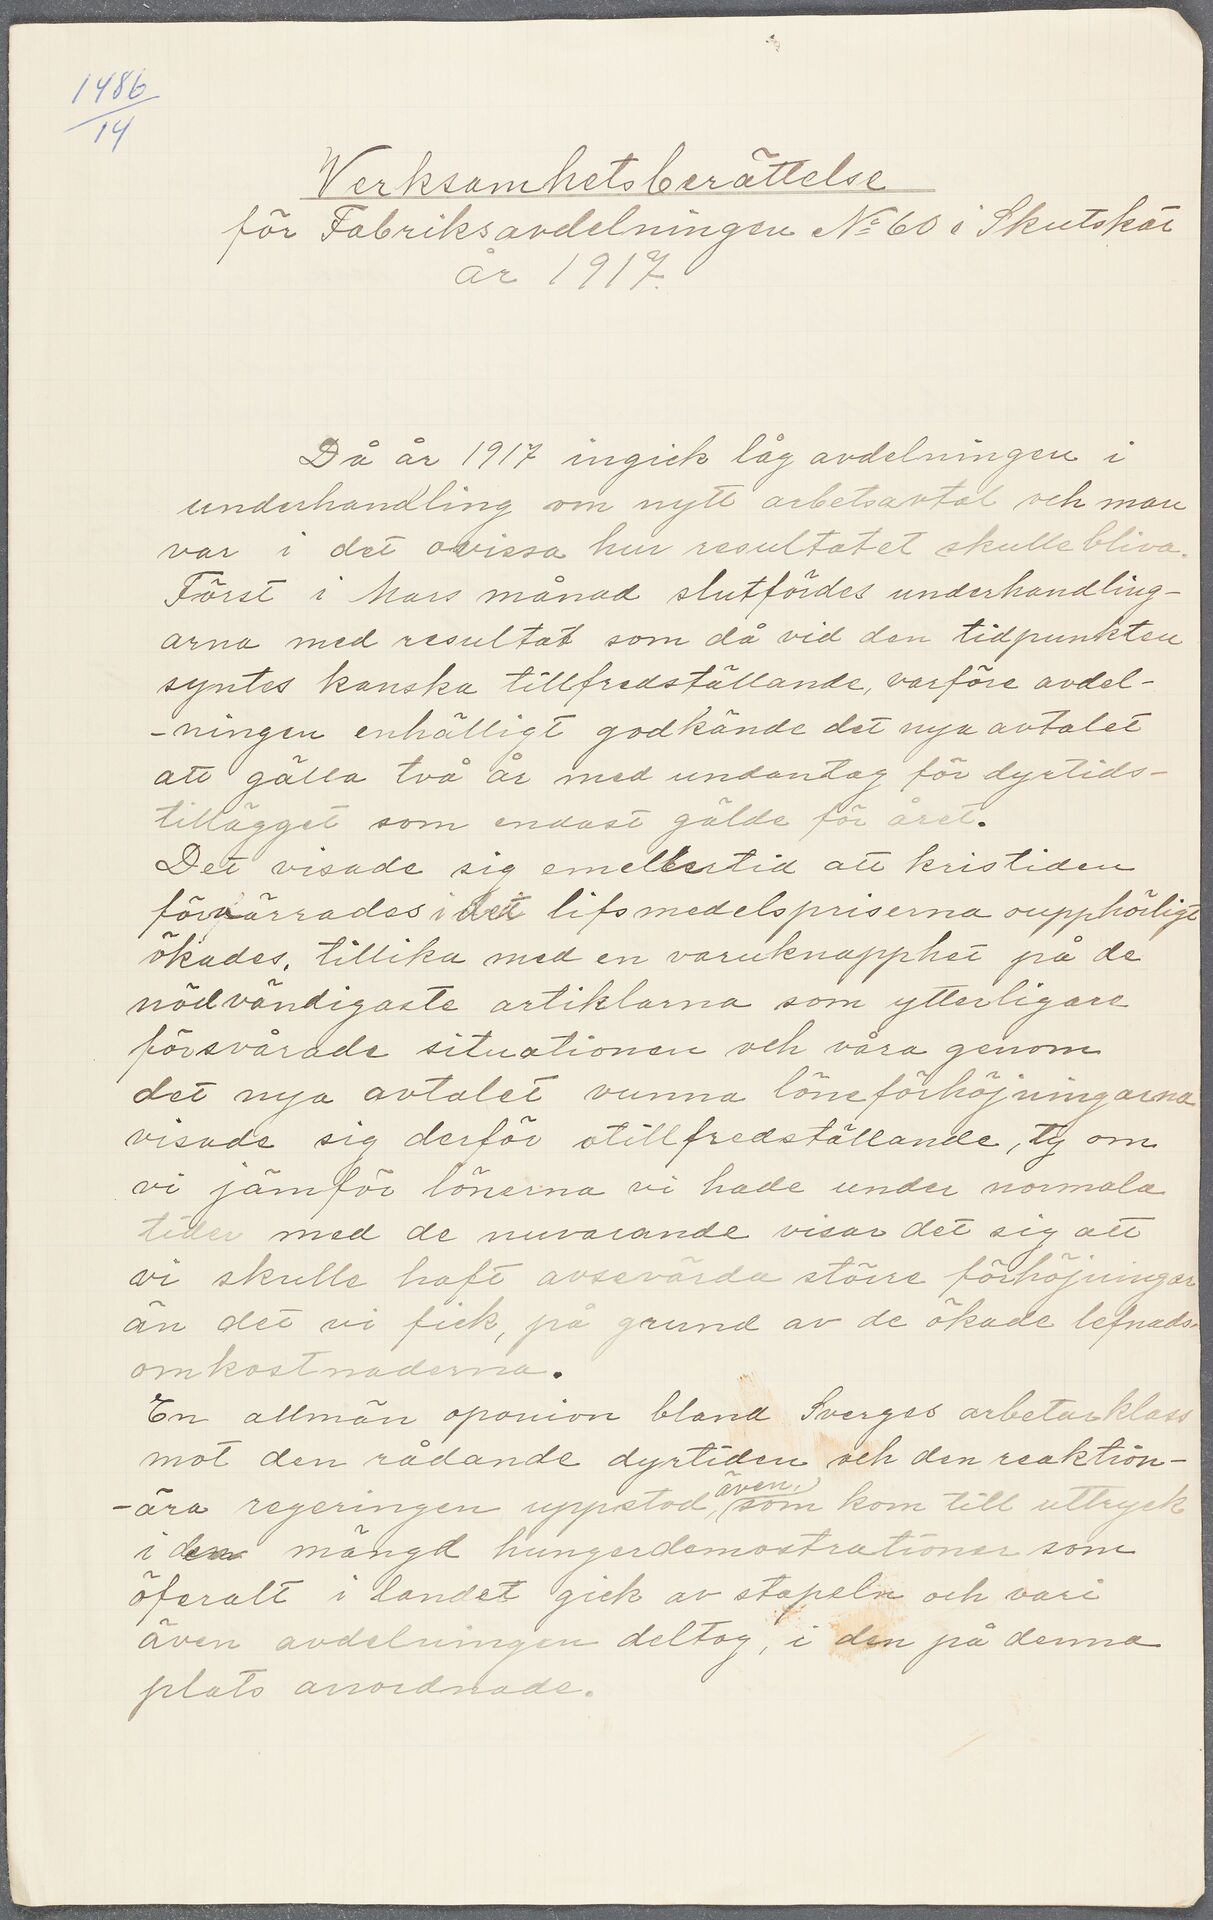 1486
14
Verksamhetsberättelse
för Fabriksavdelningen No 60 i Skutskär
år 1917.
Då år 1917 ingick låg avdelningen i
underhandling om nytt arbetsavtal och man
var i det ovissa hur resultatet skulle bliva.
Först i Mars månad slutfördes underhandling-
arna med resultat som då vid den tidpunkten
syntes kanska tillfredställande, varföre avdel-
-ningen enhälligt godkände det nya avtalet
att gälla två år med undantag för dyrtids-
tillägget som endast gälde för året.
Det visade sig emellertid att kristiden
förvärrades i det lifsmedelspriserna oupphörligt
ökades, tillika med en varuknapphet på de
nödvändigaste artiklarna som ytterligare
försvårade situationen och våra genom
det nya avtalet vunna löneförhöjningarna
visade sig derför otillfredställande, ty om
vi jämför lönerna vi hade under normala
tider med de nuvarande visar det sig att
vi skulle haft avsevärda större förhöjningar
än det vi fick, på grund av de ökade lefnads-
omkostnaderna.
En allmän oponion bland Sverges arbetarklass
mot den rådande dyrtiden och den reaktion-
-ära regeringen uppstod, även som kom till uttryck
i den mängd hungerdemostrationer som
öferalt i landet gick av stapeln och vari
även avdelningen deltog, i den på denna
plats anordnade.